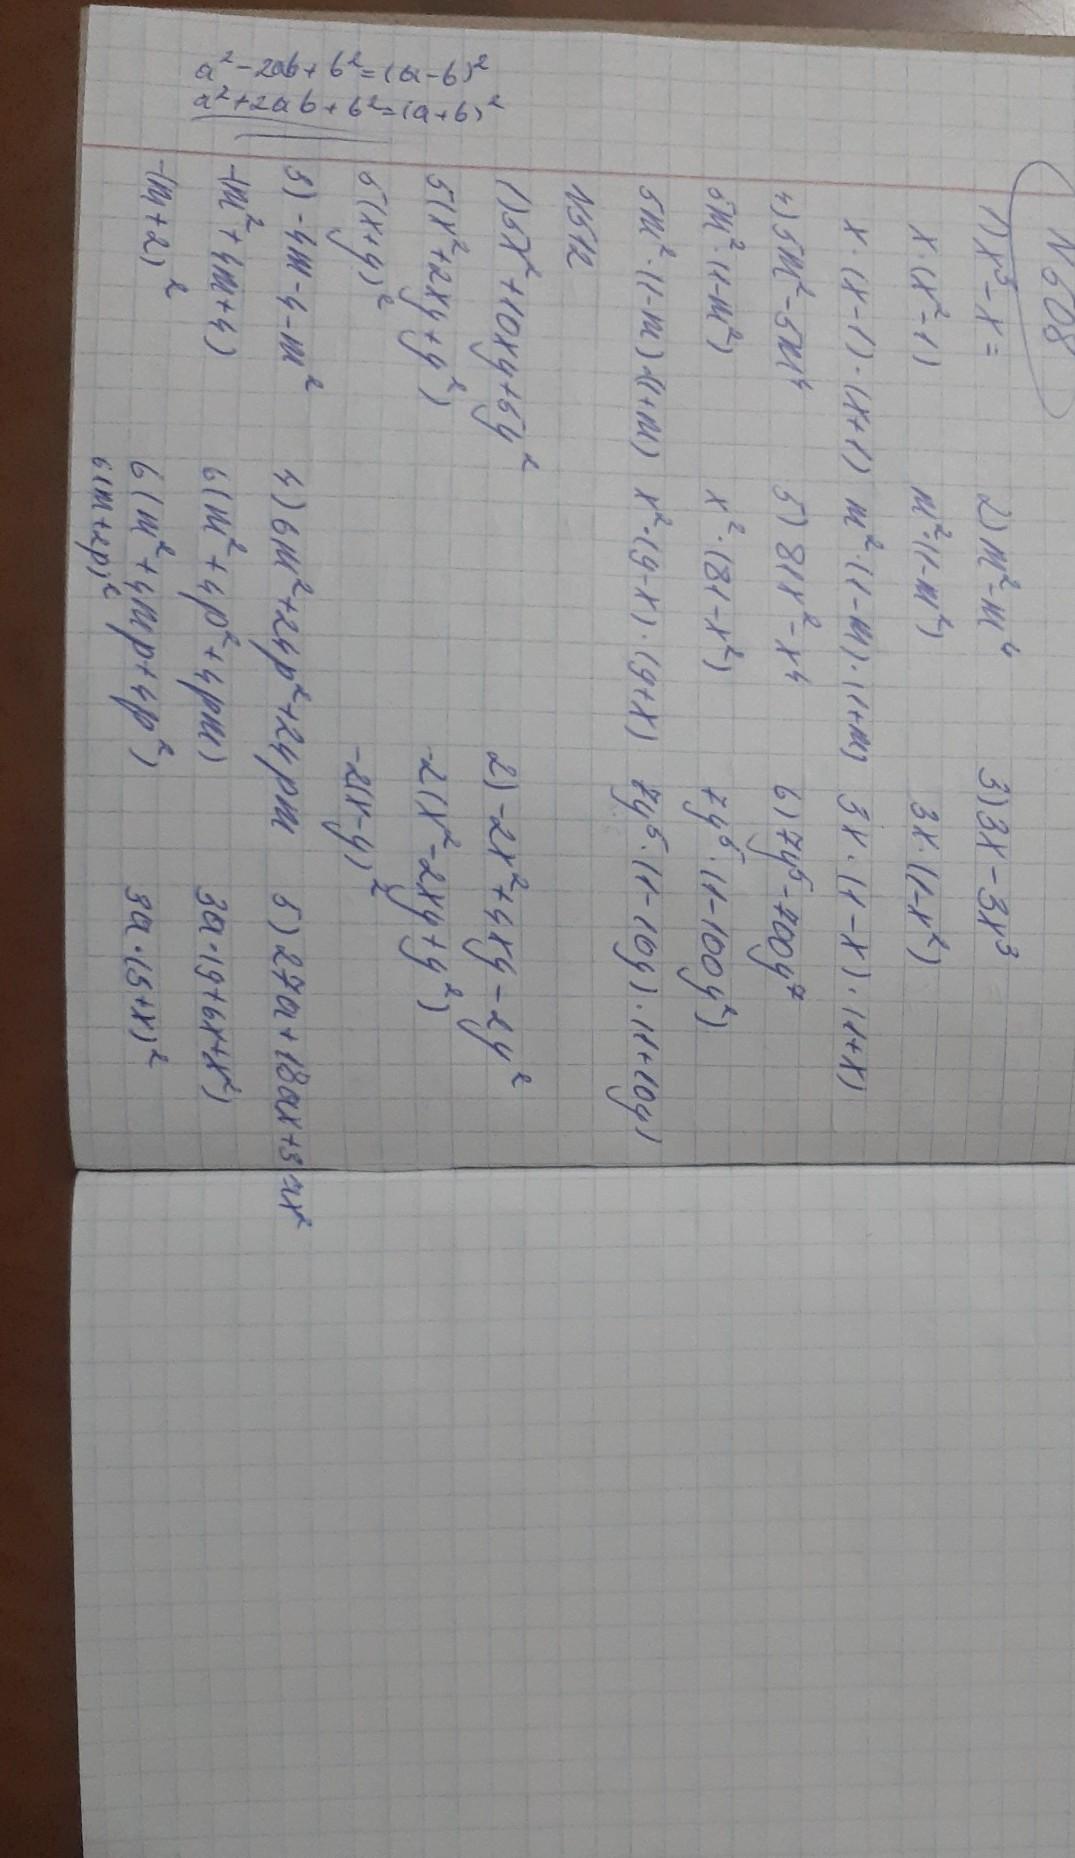 N508
1) x³ - x =
2) m² - m⁴
3) 3x - 3x³
x · (x² - 1)
m² · (1 - m²)
3x · (1 - x²)
x · (x - 1) · (x + 1)
m² · (1 - m) · (1 + m)
3x · (1 - x) · (1 + x)
4) 5m² - 5m⁴
5) 81x² - x⁴
6) 7y⁵ - 700y⁷
5m² · (1 - m²)
x² · (81 - x²)
7y⁵ · (1 - 100y²)
5m² · (1 - m) · (1 + m)
x² · (9 - x) · (9 + x)
7y⁵ · (1 - 10y) · (1 + 10y)
N512
1) 5x² + 10xy + 5y²
2) -2x² + 4xy - 2y²
5(x² + 2xy + y²)
-2(x² - 2xy + y²)
5(x + y)²
-2(x - y)²
3) -4m - 4 - m²
4) 6m² + 24p² + 24pm
5) 27a + 18ax + 3ax²
-(m² + 4m + 4)
6(m² + 4p² + 4pm)
3a · (9 + 6x + x²)
-(m + 2)²
6(m² + 4mp + 4p²)
3a · (3 + x)²
6(m + 2p)²
a² - 2ab + b² = (a - b)²
a² + 2ab + b² = (a + b)²